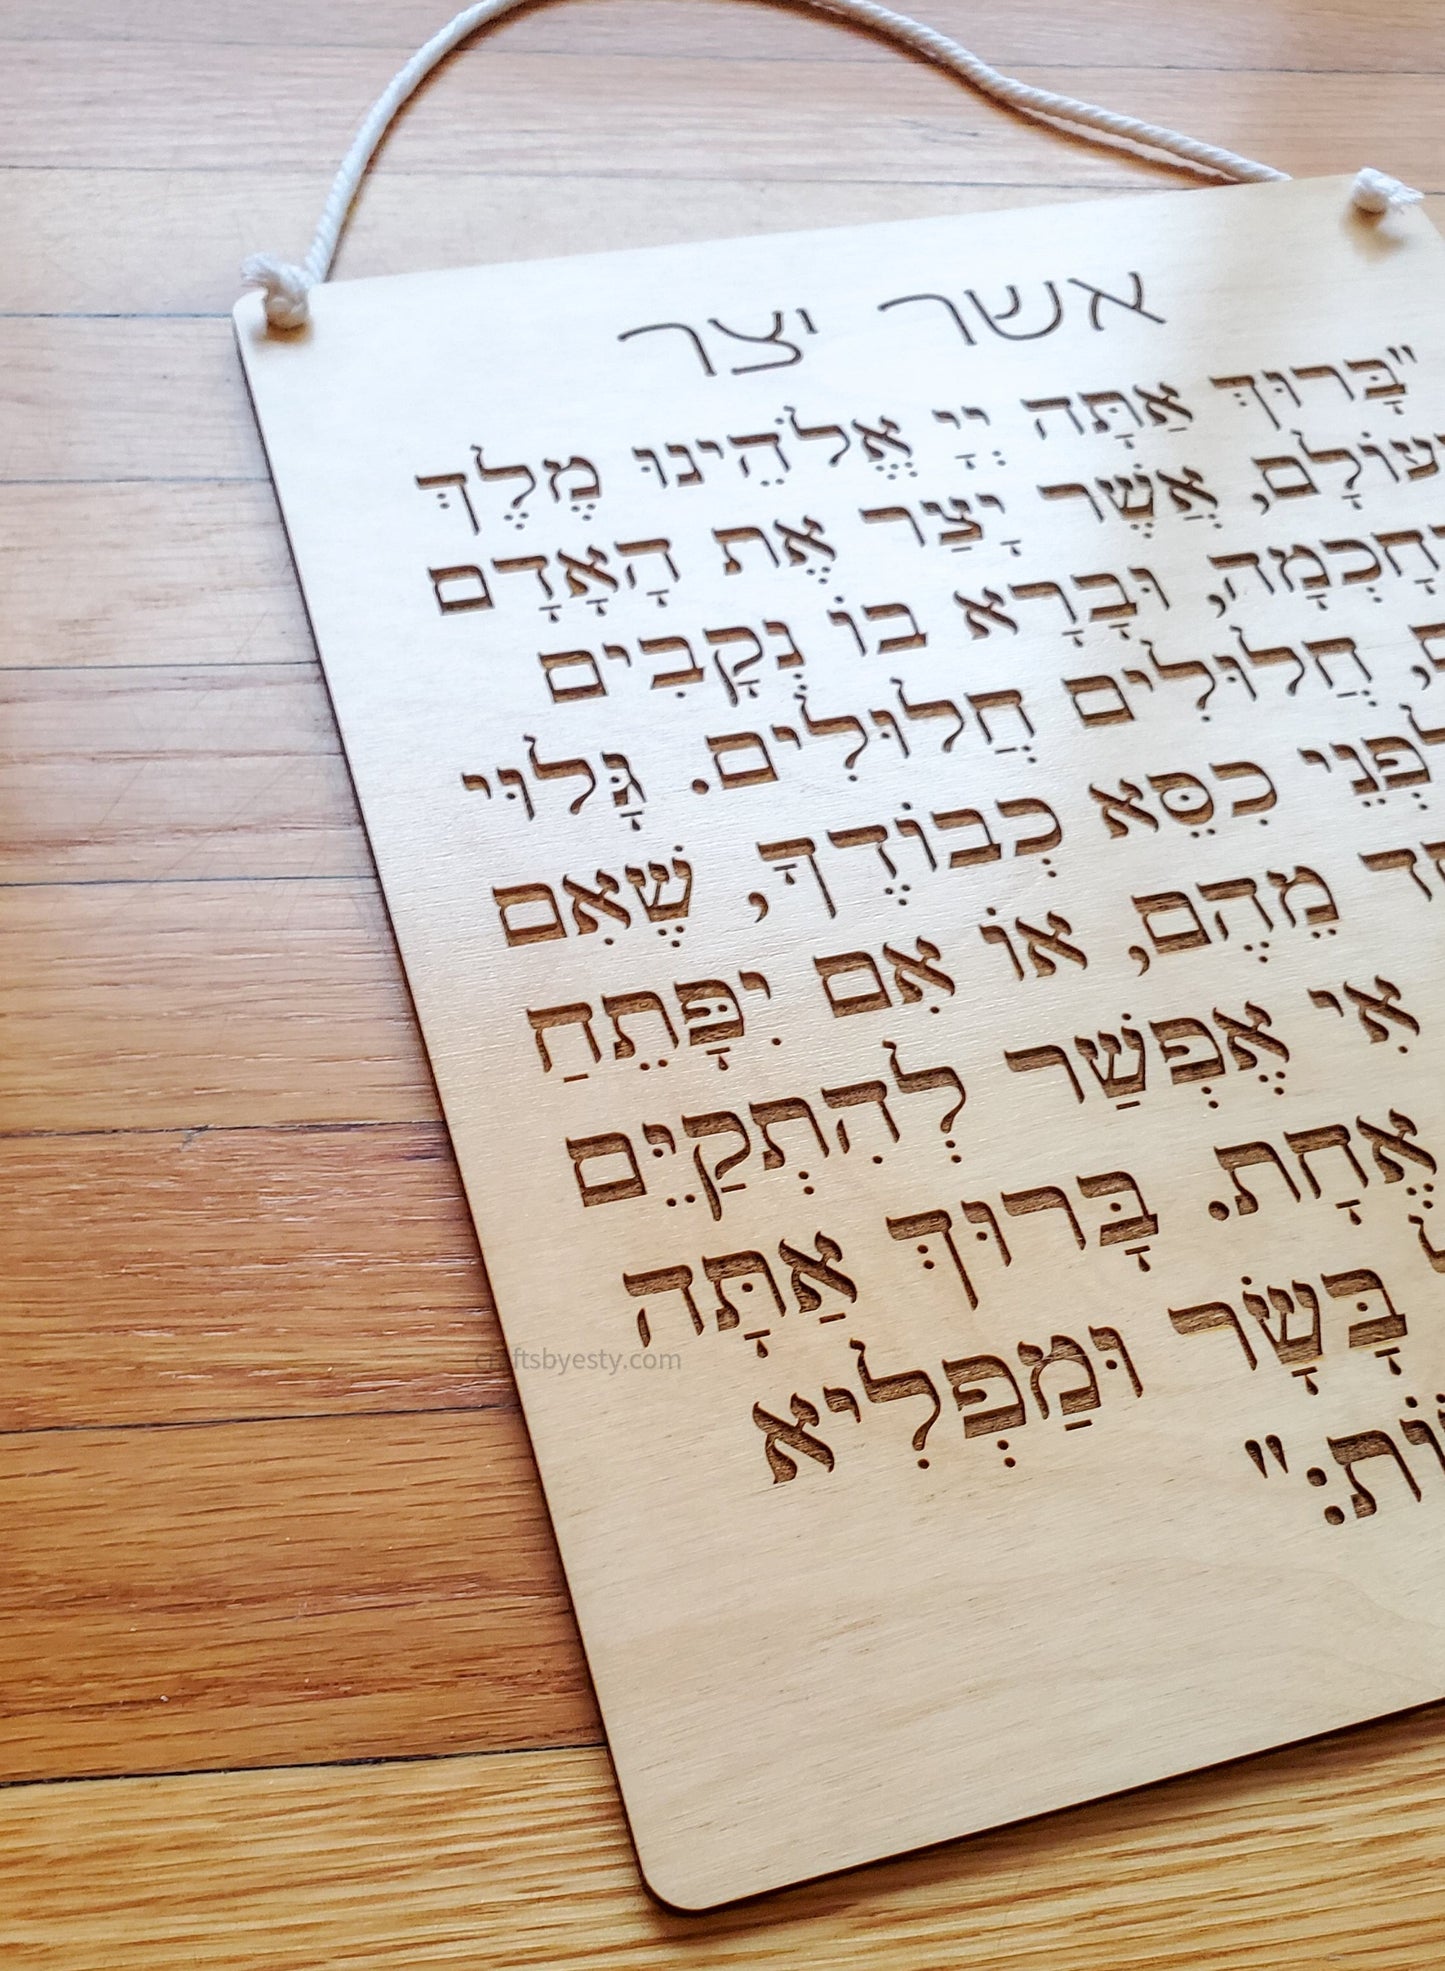 אשר יצר
"בָּרוּךְ אַתָּה יְיָ אֱלֹהֵינוּ מֶלֶךְ
עוֹלָם, אֲשֶׁר יָצַר אֶת הָאָדָם
חָכְמָה, וּבָרָא בוֹ נְקָבִים
חֲלוּלִים חֲלוּלִים. גָּלוּי
לִפְנֵי כִסֵּא כְבוֹדֶךָ, שֶׁאִם
מֵהֶם, אוֹ אִם יִפָּתֵחַ
אִי אֶפְשַׁר לְהִתְקַיֵּם
אֶחָת. בָּרוּךְ אַתָּה
בָּשָׂר וּמַפְלִיא
craftsbyesty.com